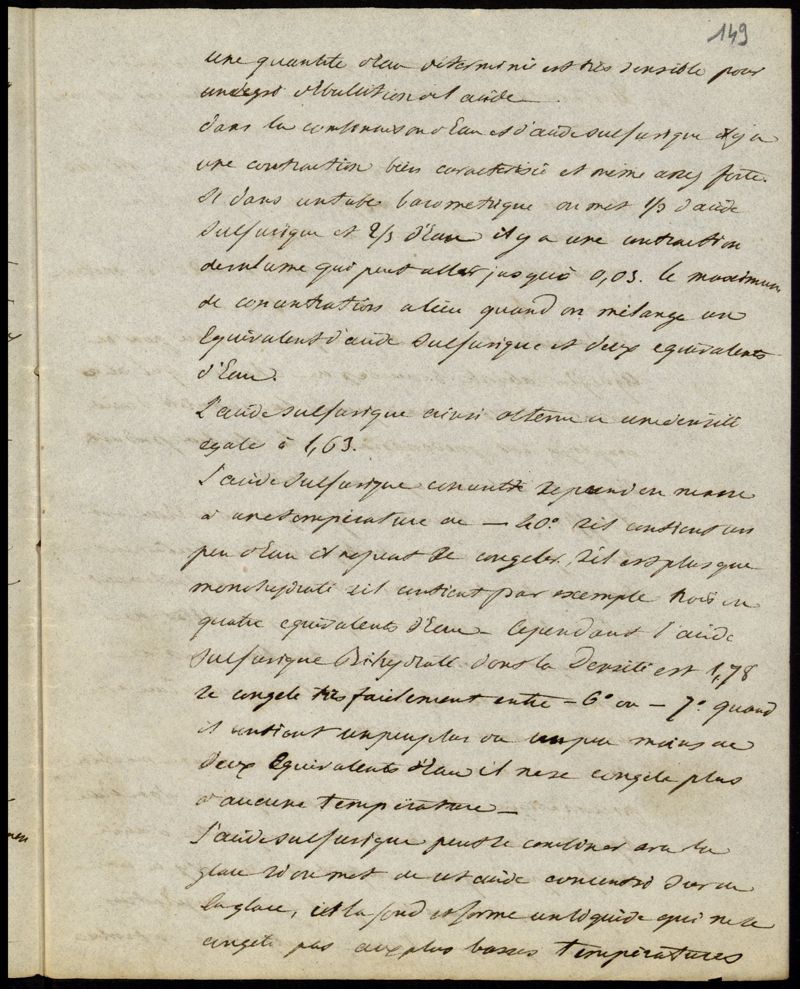 149
une quantité d'eau déterminé est très sensible pour
un degré d'ébullition de l'acide.
dans la combinaison d'Eau et d'acide sulfurique il y a
une contraction bien caracterisée et même assez forte.
Si dans un tube barometrique on met 1/3 d'acide
sulfurique et 2/3 d'Eau il y a une contraction
de volume qui peut aller jusqu'à 0,03. le maximum
de concentration a lieu quand on mélange un
Equivalent d'acide sulfurique et deux equivalents
d'Eau.
L'acide sulfurique ainsi obtenu a une densité
égale à 1,63.
L'acide sulfurique concentré se prend en masse
à une température de – 40° s'il contient un
peu d'eau il ne peut se congeler, s'il est plus que
monohydraté s'il contient par exemple trois ou
quatre equivalents d'Eau – Cependant l'acide
sulfurique Bihydraté dont la Densité est 1,78
se congele très facilement entre – 6° ou – 7° quand
il contient un peu plus ou un peu moins de
Deux Equivalents d'Eau il ne se congele plus
à aucune température –
L'acide sulfurique peut se combiner avec la
glace si on met de cet acide concentré sur de
la glace, il la fond et forme un liquide qui ne se
congele pas aux plus basses températures